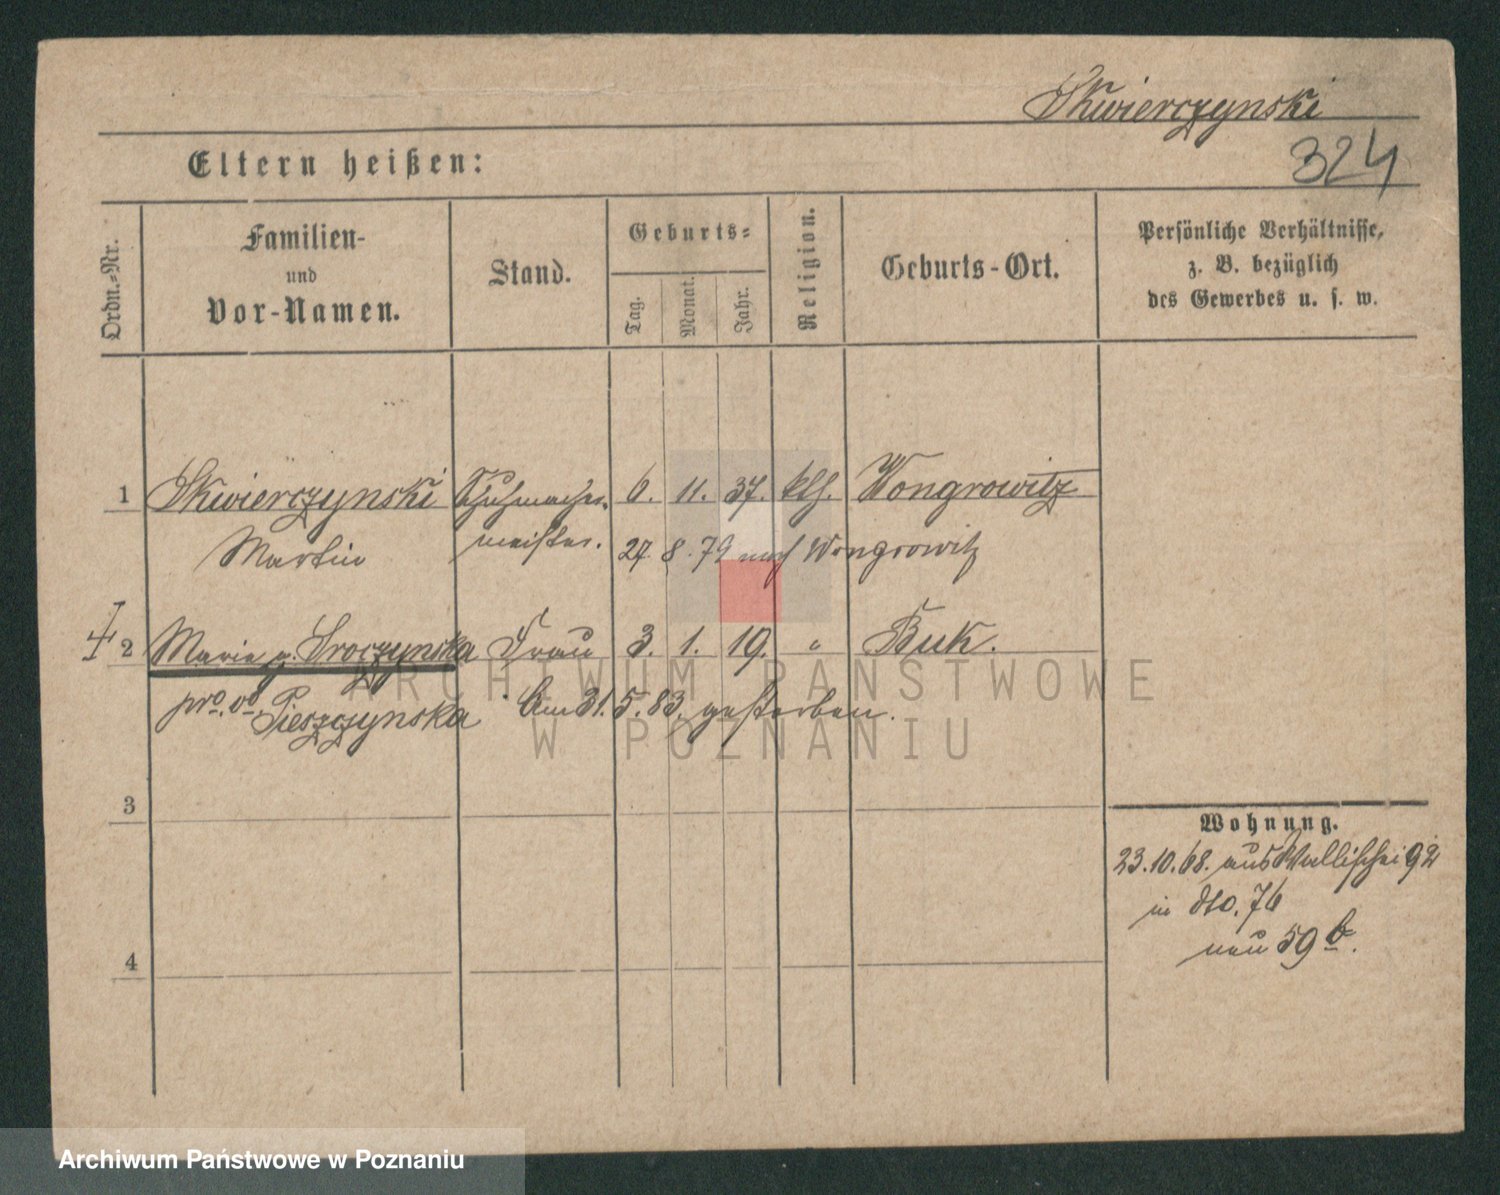 Skwierczynski
Eltern heißen:
324
Ordn.-Nr.
Familien-
und
Vor-Namen.
Stand.
Geburts-
Tag.
Monat.
Jahr.
Religion.
Geburts-Ort.
Persönliche Verhältnisse,
z. B. bezüglich
des Gewerbes u. s. w.
1 Skwierczynski Schuhmacher- 6. 11. 37. kth. Wongrowitz
Martin meister. 27. 8. 79 nach Wongrowitz
2 Marie g. Sroczynska Frau 3. 1. 19. " Buk.
pro. vo. Pieszczynska Am 31. 5. 83. gestorben.
3
4
Wohnung.
23.10.68. aus Wallischei 92
in dto. 76
neu 59 b.
ARCHIWUM PAŃSTWOWE
W POZNANIU
Archiwum Państwowe w Poznaniu